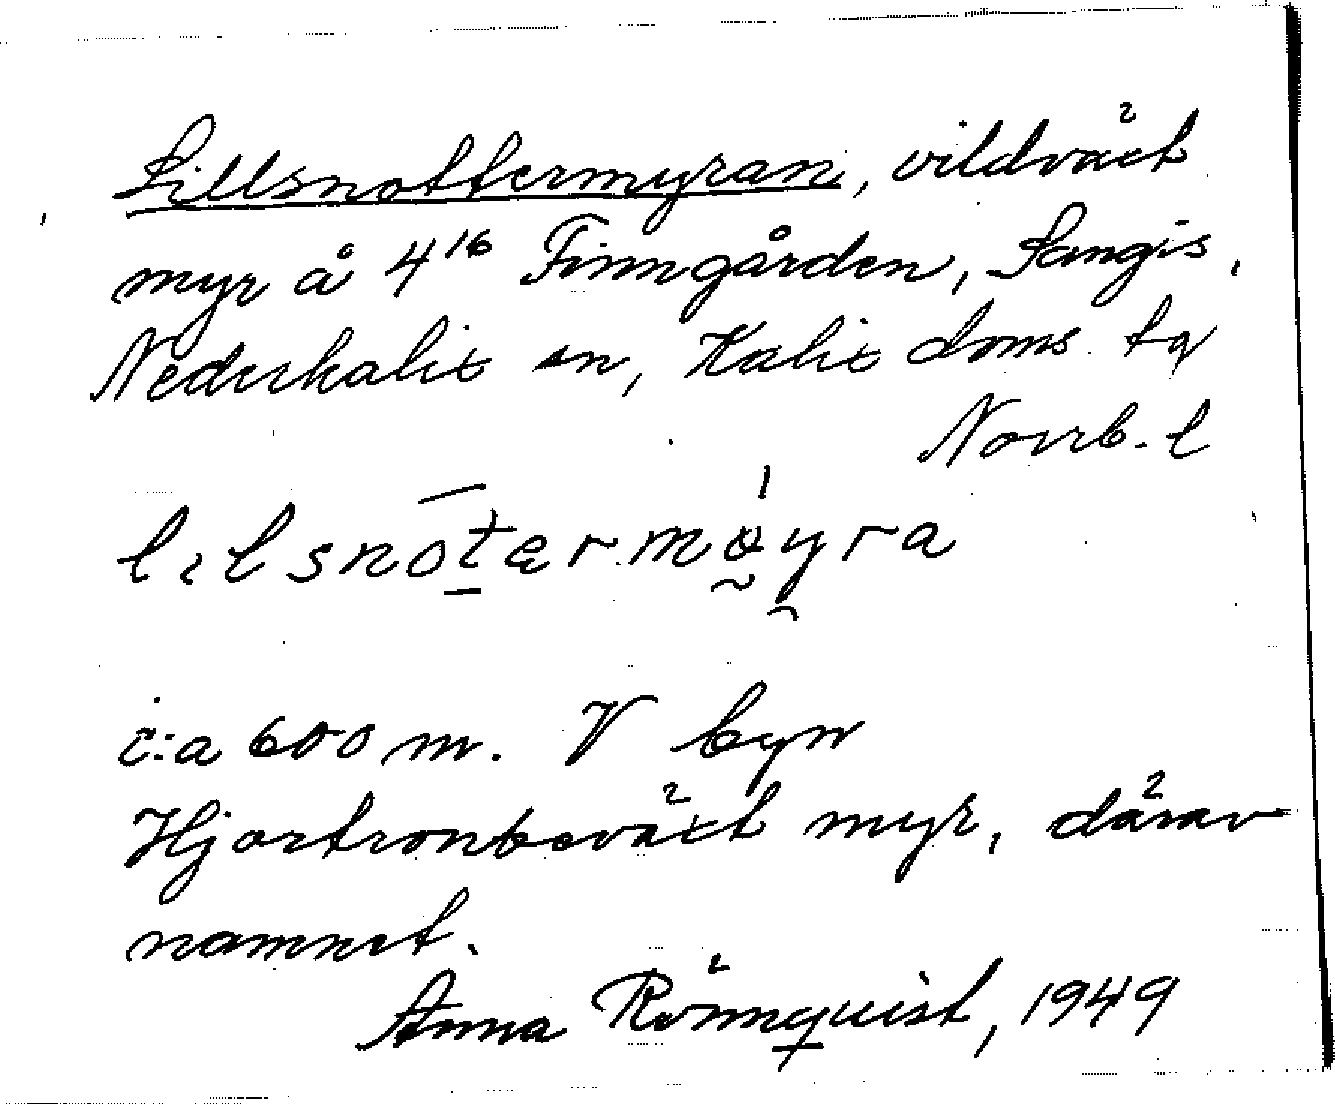 Lillsnottermyran, vildväxt
myr å 4¹⁶ Finngården, Sangis,
Nederkalix sn, Kalix doms. tg
Norrb. l
lılsnotermøyra
c:a 600 m. V byn
Hjortronbeväxt myr, därav
namnet.
Anna Rönnquist, 1949